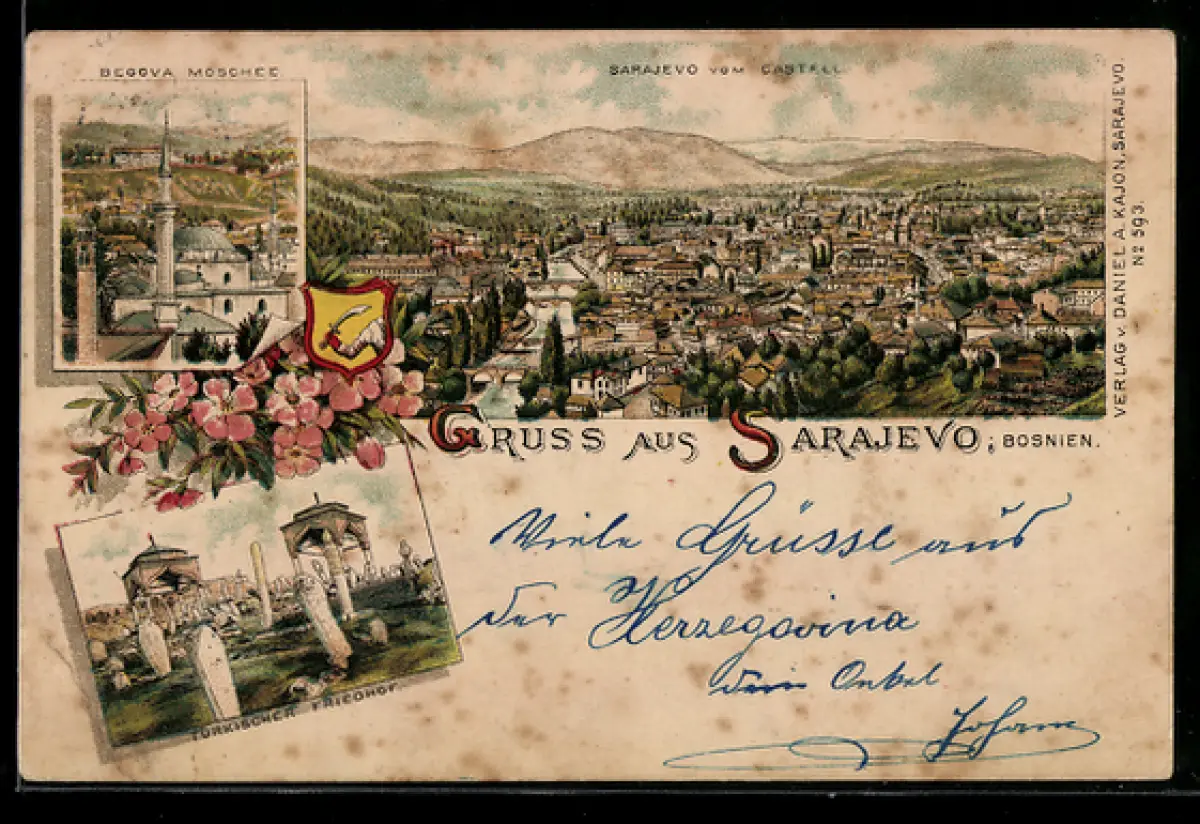 BEGOVA MOSCHEE
SARAJEVO VOM CASTELL
VERLAG v. DANIEL A. KAJON, SARAJEVO.
No 593.
GRUSS AUS SARAJEVO, BOSNIEN.
Viele Grüsse aus
der Herzegovina
dein Onkel
Johann
TÜRKISCHER FRIEDHOF